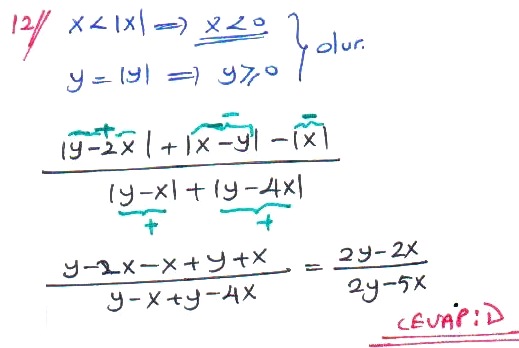 12// x < |x| ⇒ x < 0
y = |y| ⇒ y ≥ 0 } olur.
+ − −
|y-2x| + |x-y| - |x|
|y-x| + |y-4x|
+ +
y-2x-x+y+x = 2y-2x
y-x+y-4x 2y-5x
CEVAP:D